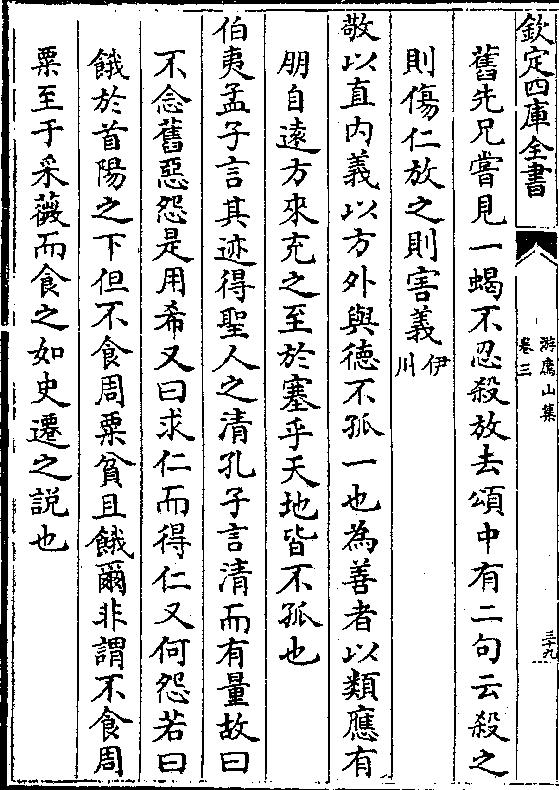 欽定四庫全書
游廌山集
卷三
三十九
舊先兄嘗見一蝎不忍殺放去頌中有二句云殺之
則傷仁放之則害義伊川
敬以直内義以方外與徳不孤一也為善者以類應有
朋自逺方來充之至於塞乎天地皆不孤也
伯夷孟子言其迹得聖人之清孔子言清而有量故曰
不念舊惡怨是用希又曰求仁而得仁又何怨若曰
餓於首陽之下但不食周粟貧且餓爾非謂不食周
粟至于采薇而食之如史遷之説也